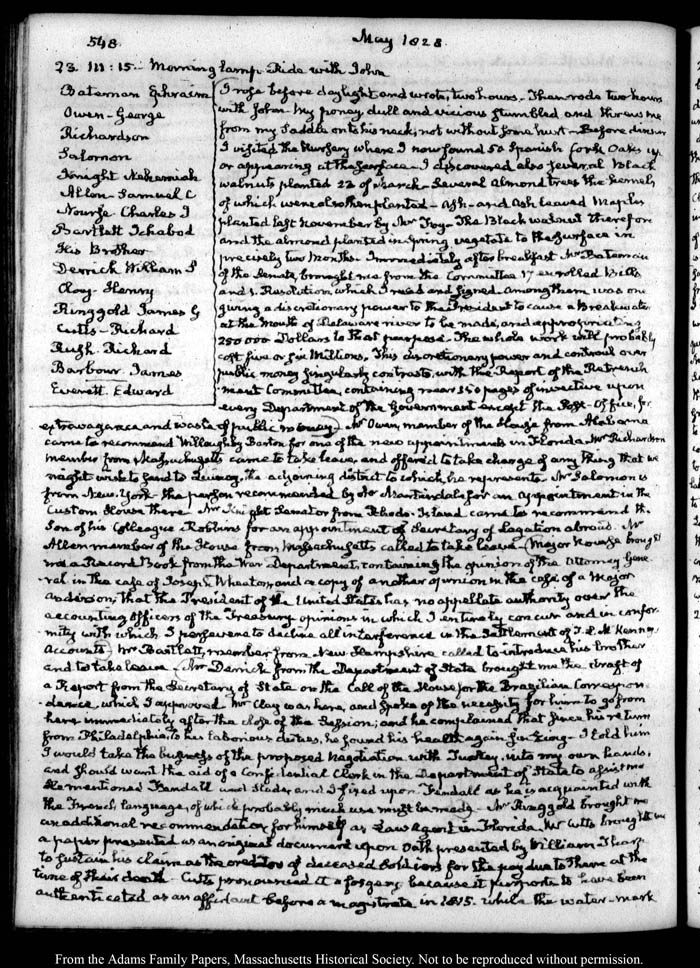 548.
May 1828.
23. III:15. Morning lamp. Ride with John
Bateman Ephraim
Owen - George
Richardson
Salomon
Knight Nehemiah
Allen - Samuel C
Nourse Charles J
Bartlett Ichabod
His Brother
Derrick William S
Clay - Henry
Ringgold James G
Cutts - Richard
Rush. Richard
Barbour. James
Everett. Edward
I rose before daylight and wrote, two hours. Then rode two hours
with John - My poney, dull and vicious stumbled and threw me
from my Saddle onto his neck, not without some hurt - Before dinner
I visited the Nursery where I now found 50 Spanish Cork Oaks up
or appearing at the surface - I discovered also several Black
walnuts planted 22 of March - Several almond trees the kernels
of which were also then planted - Ash - and Ash leaved Maples
planted last November by Mr Foy - The Black walnut therefore
and the almond planted in Spring vegetate to the surface in
precisely two months. Immediately after breakfast Mr Bateman
of the Senate, brought me from the Committee 17 enrolled Bills
and 1. Resolution which I read and signed. Among them was one
giving a discretionary power to the President to cause a Breakwater
at the mouth of Delaware river to be made, and appropriating
250 000 Dollars to that purpose. The whole work will probably
cost five or six Millions. This discretionary power and controul over
public money singularly contrasts, with the Report of the Retrench
ment Committee, containing near 150 pages of invective upon
every Department of the Government except the Post-Office, for
extravagance and waste of public money) - Mr Owen, member of the House from Alabama
came to recommend Willoughby Barton for one of the new appointments in Florida. Mr Richardson
member from Massachusetts came to take leave, and offered to take charge of any thing that we
might wish to send to Quincy, the adjoining district to which, he represents. Mr Salomon is
from New-York the person recommended by Dr Martindale for an appointment in the
Custom House there - Mr Knight Senator from Rhode-Island came to recommend the
Son of his Colleague Robbins for an appointment of Secretary of Legation abroad. Mr
Allen member of the House from Massachusetts called to take leave - (Major Nourse brought
me a Record Book from the War Department, containing the opinion of the Attorney Gene
ral in the case of Joseph Wheaton, and a copy of another opinion in the case of a Major
, that the President of the United States has no appellate authority over the
accounting Officers of the Treasury opinions in which I entirely concur and in confor
mity with which I persevere to decline all interference in the Settlement of T. L. McKenney
Accounts) Mr Bartlett, member from New Hampshire called to introduce his brother
and to take leave (Mr Derrick from the Department of State brought me the draft of
a Report from the Secretary of State on the Call of the House for the Brazilian Correspon
dence, which I approved Mr Clay was here, and spoke of the necessity for him to go from
here immediately after the close of the Session; and he complained that since his return
from Philadelphia to his laborious duties, he found his health again failing - I told him
I would take the business of the proposed Negotiation with Turkey, into my own hands,
and should want the aid of a Confidential Clerk in the Department of State to assist me
He mentioned Fendall and Slade, and I fixed upon Fendall as he is acquainted with
the French language, of which probably much use must be made) - Mr Ringgold brought me
an additional recommendation for himself as Law Agent in Florida. Mr Cutts brought me
a paper presented as an original document upon Oath presented by William Tharp
to sustain his claim as the creditor of deceased Soldiers for the pay due to them at the
time of their death - Cutts pronounced it a forgery because it purports to have been
authenticated as an affidavit before a magistrate in 1815. while the water-mark
From the Adams Family Papers, Massachusetts Historical Society. Not to be reproduced without permission.